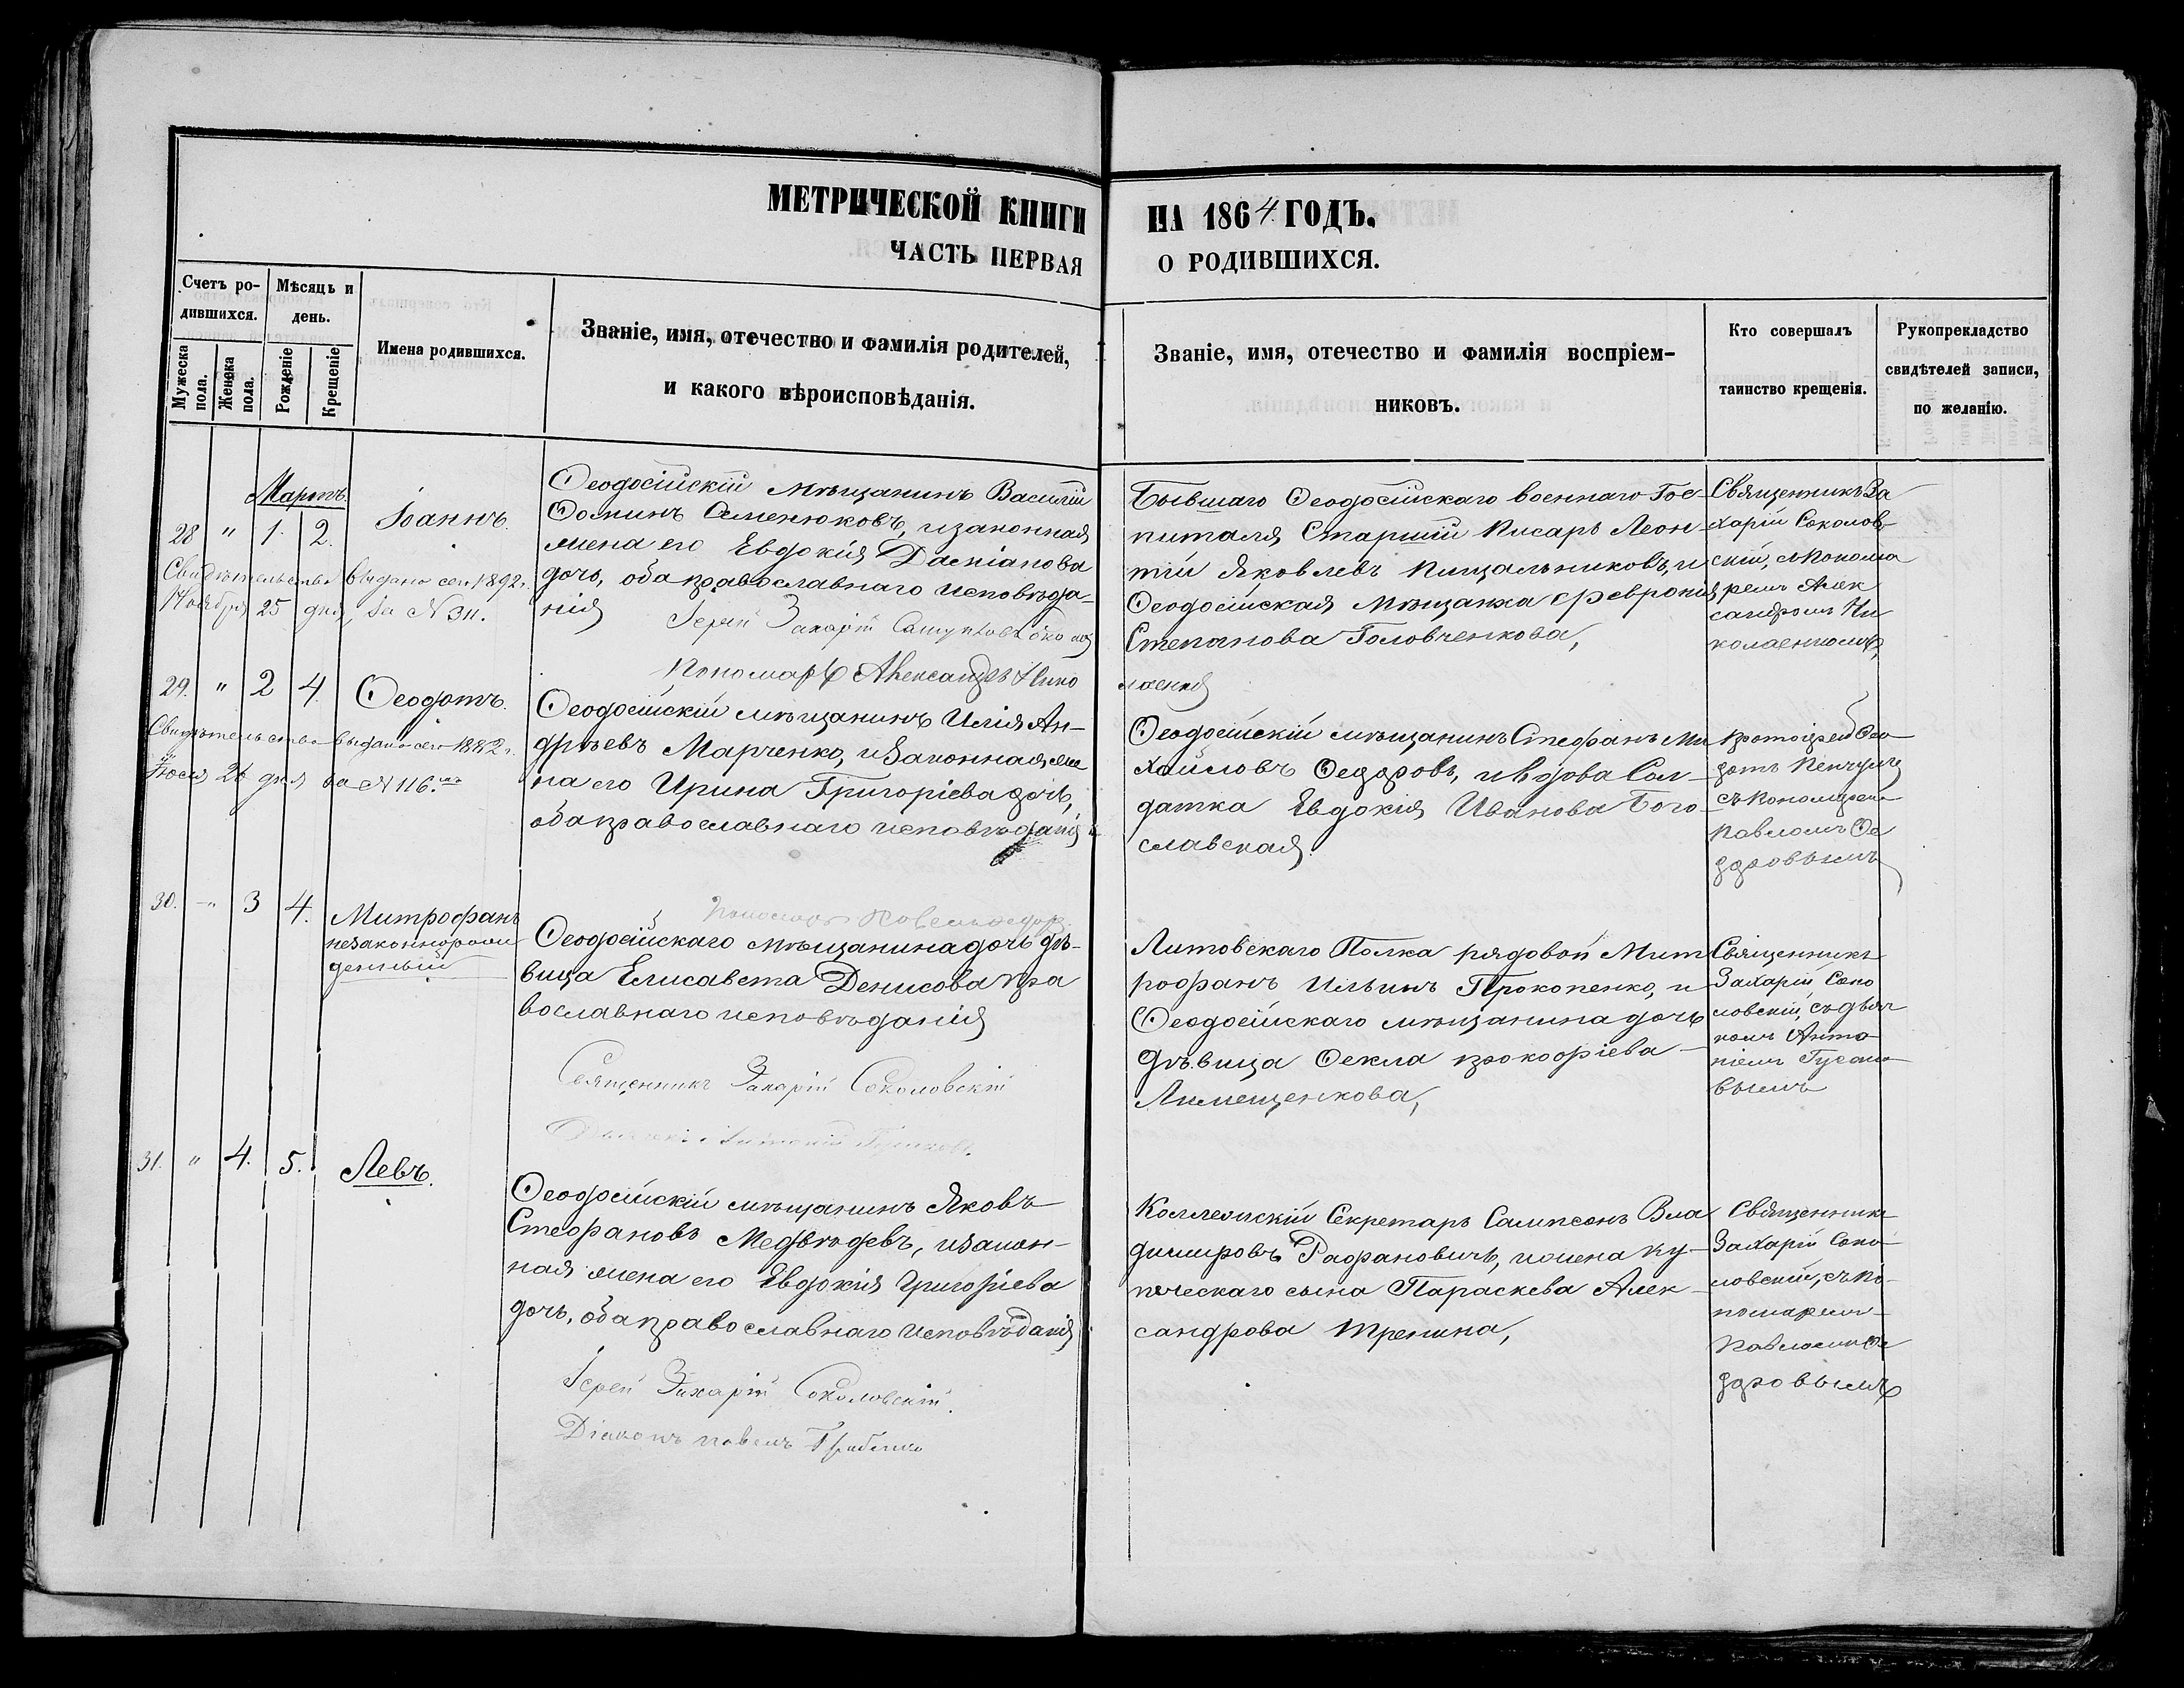 МЕТРИЧЕСКОЙ КНИГИ НА 1864 ГОДЪ.
ЧАСТЬ ПЕРВАЯ О РОДИВШИХСЯ.
Счетъ ро-
дившихся.
Мужеска
пола.
Женска
пола.
Мѣсяцъ и
день.
Рожденіе
Крещеніе
Имена родившихся.
Званіе, имя, отечество и фамилія родителей,
и какого вѣроисповѣданія.
Званіе, имя, отечество и фамилія воспріем-
никовъ.
Кто совершалъ
таинство крещенія.
Рукоприкладство
свидѣтелей записи,
по желанію.
Мартъ
28 " 1. 2.
Іоаннъ.
Свидѣтельство выдано сего 1892 г.
Ноября 25 дня, за N 311.
Ѳеодосійскій мѣщанинъ Василій
Ѳоминъ Семенюковъ, и законная
жена его Евдокія Даміанова
дочь, оба православнаго исповѣда-
нія
Іерей Захарій
Пономарь Александръ Нико
лаенко
Бывшаго Ѳеодосійскаго военнаго Гос-
питаля Старшій Писарь Леон-
тій Яковлевъ Пищальниковъ, и
Ѳеодосійская мѣщанка Февронія
Степанова Головченкова,
Священникъ За
харій Соколов-
скій, съ Понома
ремъ Алек
сандромъ Ни
колаенкомъ,
29. " 2 4.
Ѳеодотъ.
Свидѣтельство выдано сего 1882 г.
Іюля 26 дня за N 116.
Ѳеодосійскій мѣщанинъ Илія Ан-
дрѣевъ Марченко, и законная же
на его Ирина Григоріева дочь,
оба православнаго исповѣданія
Ѳеодосійскій мѣщанинъ Стефанъ Ми
хайловъ Ѳедоровъ, и вдова Сол-
датка Евдокія Иванова Бого-
славская.
Протоіерей Ѳео
дотъ
съ Пономаремъ
Павломъ Ѳе
доровымъ
30. " 3 4.
Митрофанъ
незаконнорож
денный
Пономарь Павелъ Ѳедор
Ѳеодосійскаго мѣщанина дочь дѣ-
вица Елисавета Денисова пра
вославнаго исповѣданія
Священникъ Захарій Соколовскій
Литовскаго Полка рядовой Мит
рофанъ Ильинъ Прокопенко, и
Ѳеодосійскаго мѣщанина дочь
дѣвица Ѳекла Прокофіева
Лимещенкова,
Священникъ
Захарій Соко
ловскій, съ дьяч
комъ Анто
ніемъ Гусако
вымъ
31. " 4. 5.
Левъ.
Ѳеодосійскій мѣщанинъ Яковъ
Стефановъ Медвѣдевъ, и закон-
ная жена его Евдокія Григоріева
дочь, оба православнаго исповѣданія
Іерей Захарій Соколовскій.
Діаконъ Павелъ
Коллежскій Секретарь Сампсонъ Вла
диміровъ Рафановичъ, и жена ку-
печескаго сына Параскева Алек-
сандрова Тренина,
Священникъ
Захарій Соко-
ловскій, съ По-
номаремъ
Павломъ Ѳе
доровымъ